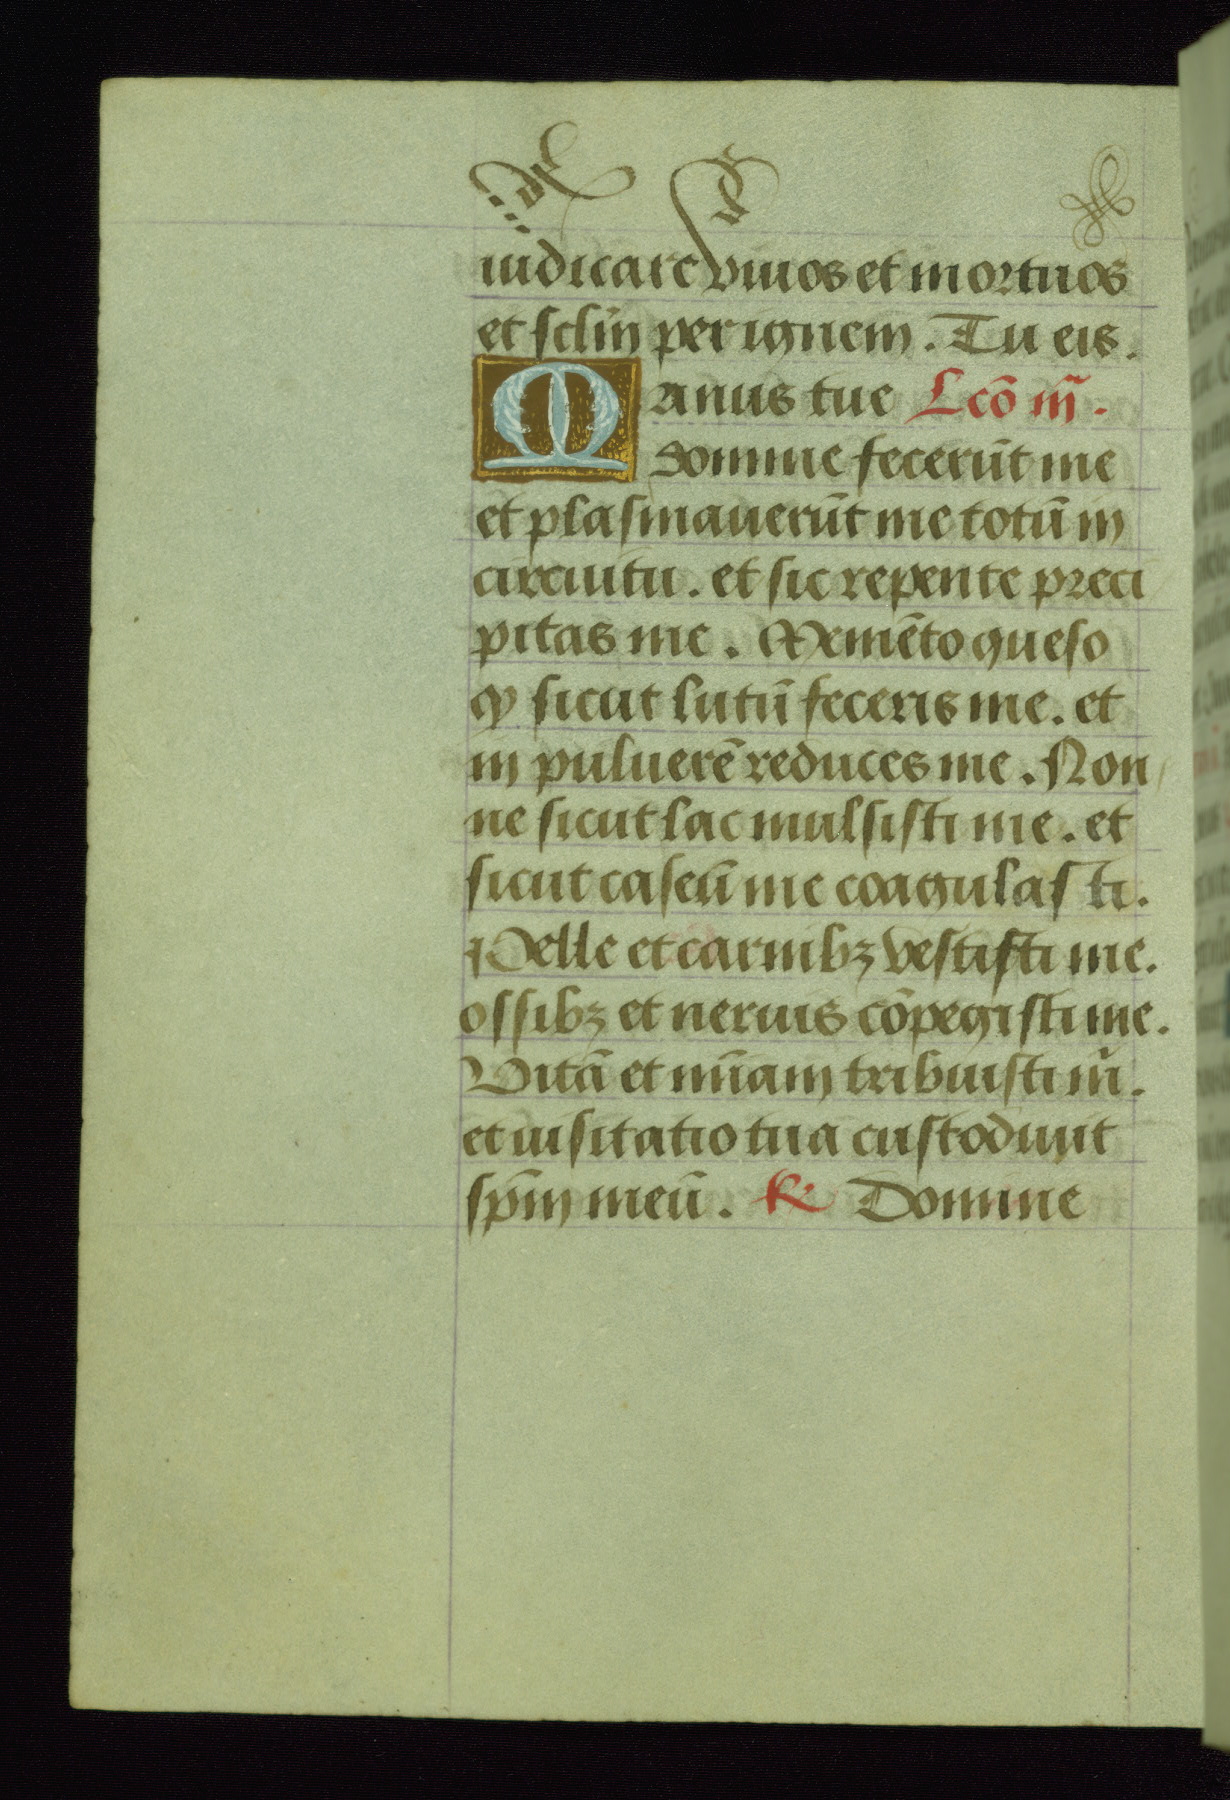 iudicare viuos et mortuos
et sclm̄ per ignem. Tu eis.
Manus tue Lcō iij.
Domine fecerūt me
et plasmauerūt me totū in
circuitu. et sic repente preci
pitas me. Memēto queso
qꝫ sicut lutū feceris me. et
in puluerē reduces me. Non
ne sicut lac mulsisti me. et
sicut caseū me coagulasti.
Pelle et carnibꝫ vestisti me.
ossibꝫ et neruis cōpegisti me.
Vitā et mīam tribuisti m̄.
et uisitatio tua custodiuit
sp̄m meū. R. Domine